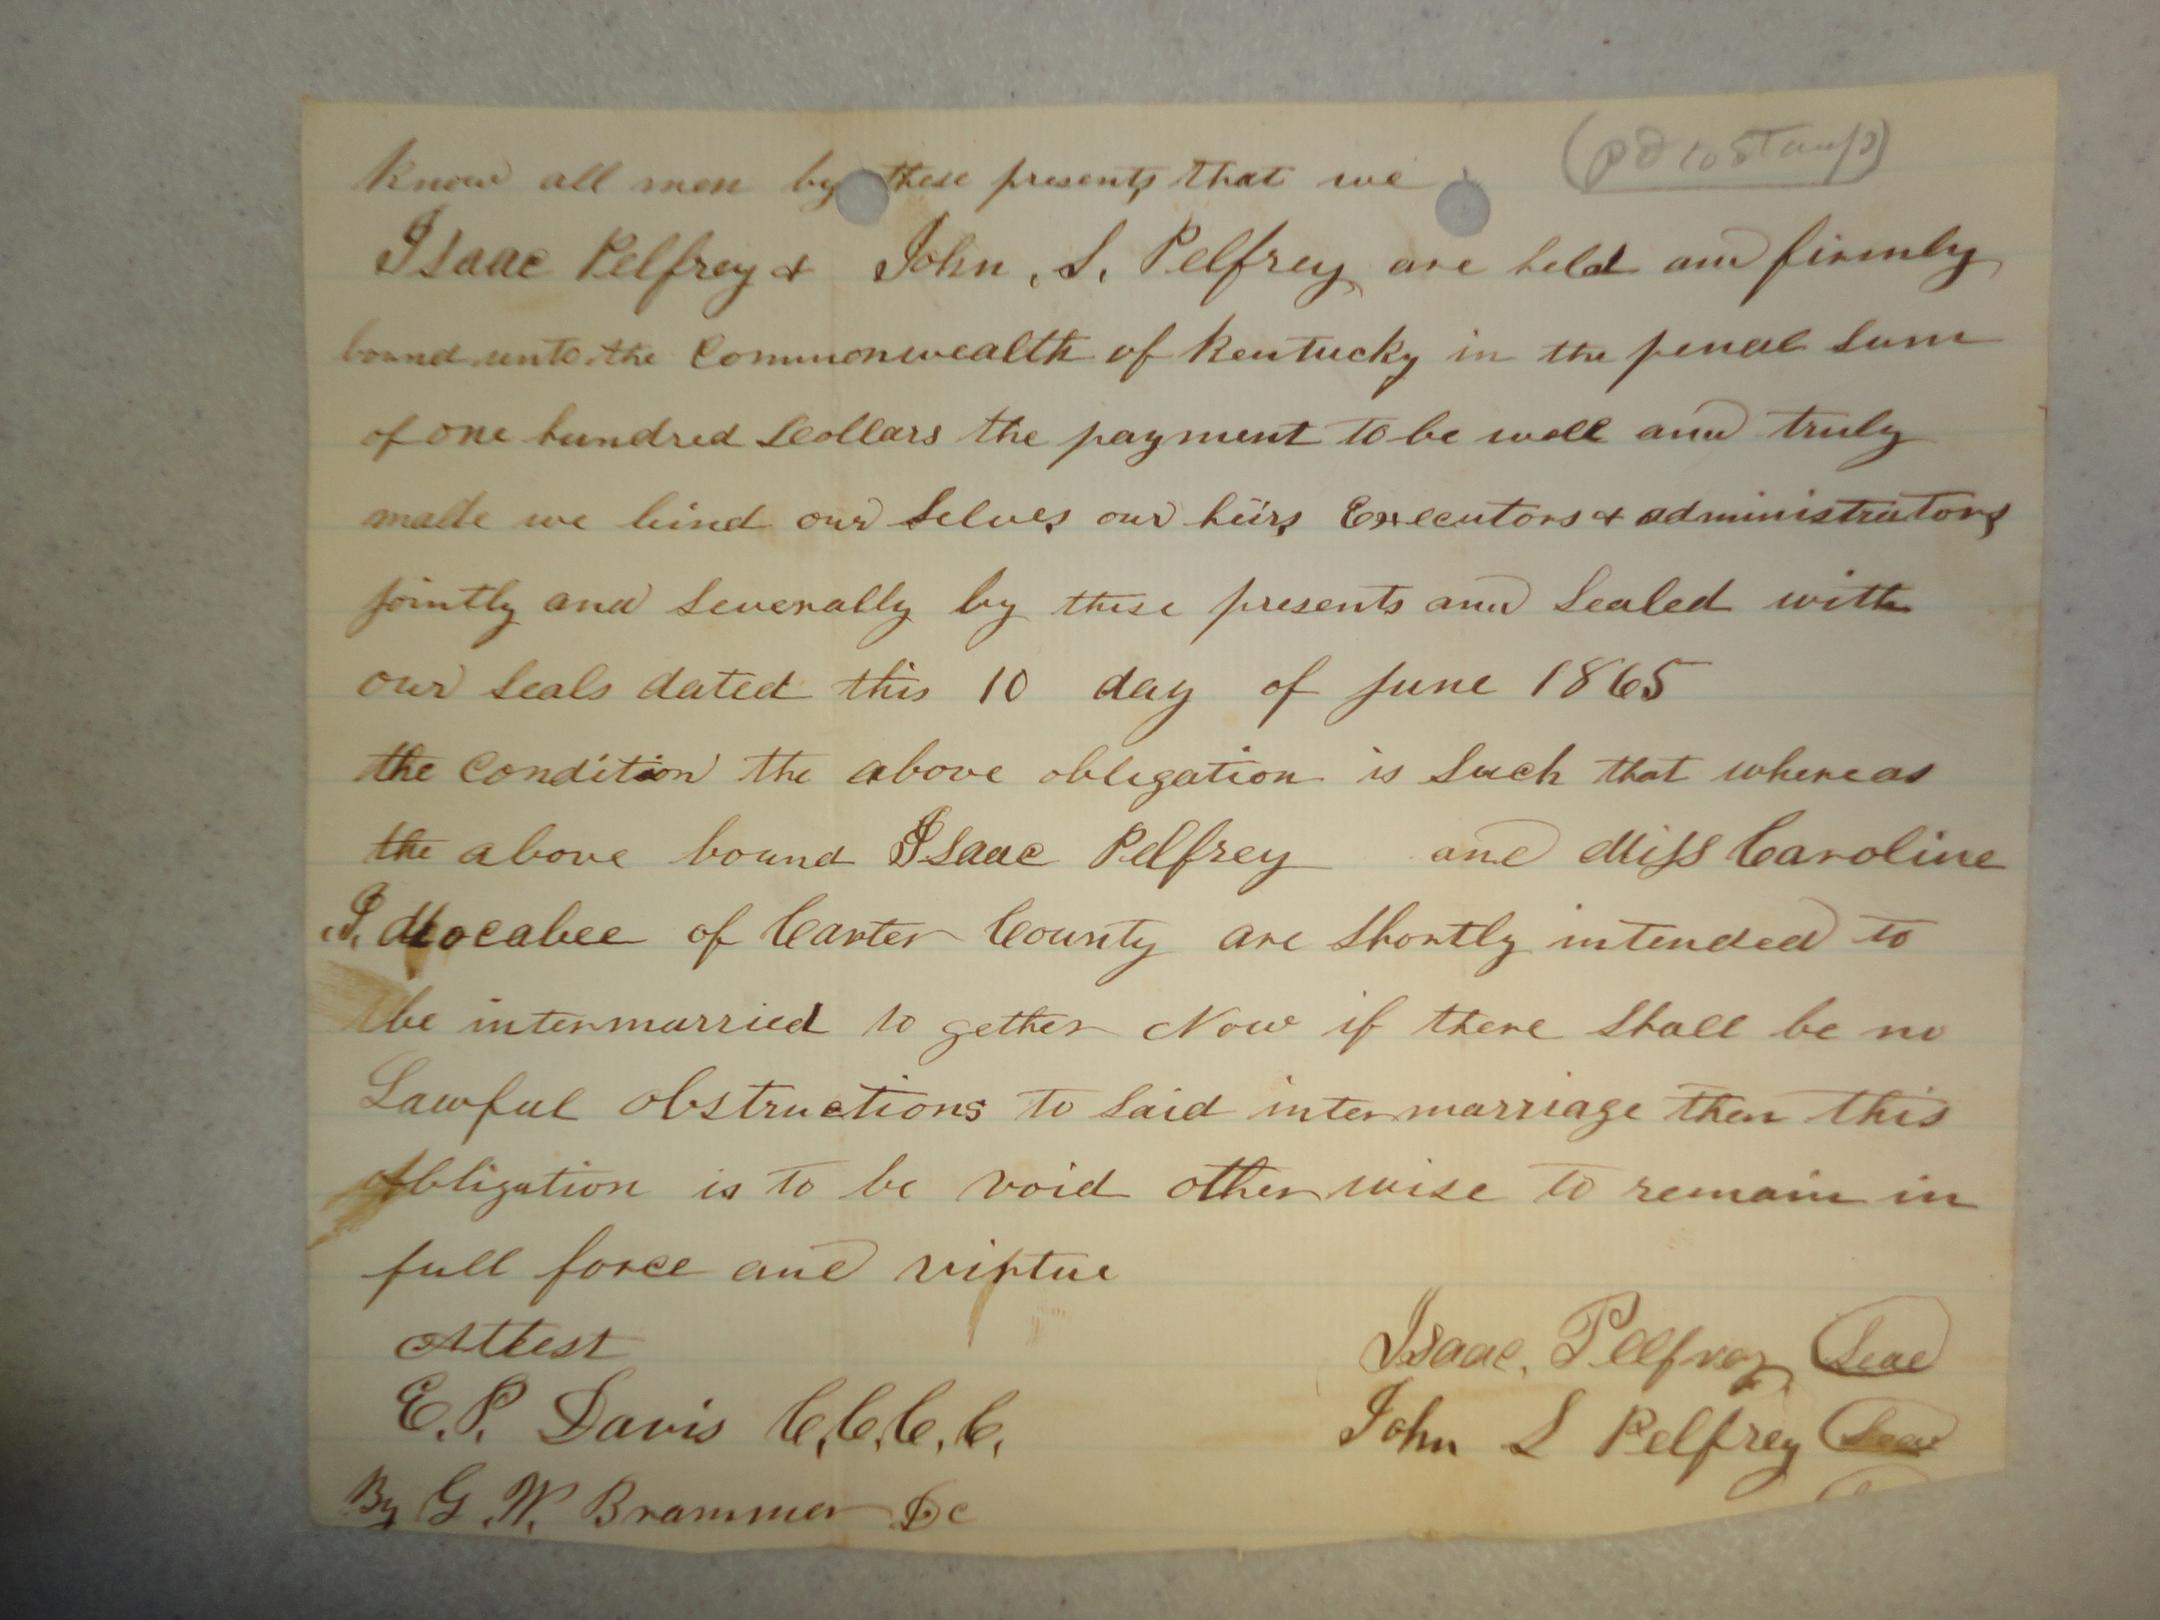 (pd 10 Stamp)
Know all men by these presents that we
Isaac Pelfrey & John, S. Pelfrey are held and firmly
bound unto the Commonwealth of Kentucky in the penal Sum
of one hundred Dollars the payment to be well and truly
made we bind our Selves our heirs Executors & administrators
jointly and Severally by these presents and Sealed with
our Seals dated this 10 day of June 1865
the Condition the above obligation is Such that whereas
the above bound Isaac Pelfrey and Miss Caroline
J. Mocabee of Carter County are Shortly intended to
be intermarried to gether Now if there Shall be no
Lawful obstructions to Said intermarriage then this
obligation is to be void other wise to remain in
full force and virtue
Attest
Isaac. Pelfrey Seal
E. P. Davis C. C. C. C.
John S Pelfrey Seal
By G. W. Brammer Dc